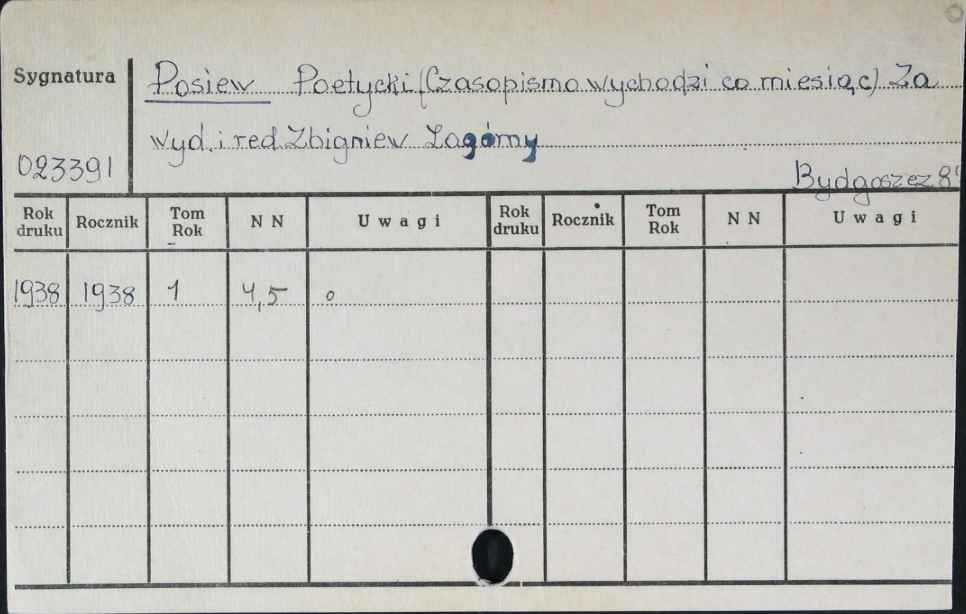 Sygnatura
Posiew Poetycki (Czasopismo wychodzi co miesiąc) Za
wyd. i red. Zbigniew Zagórny
023391
Bydgoszcz 8°
Rok druku Rocznik Tom Rok NN Uwagi Rok druku Rocznik Tom Rok NN Uwagi
1938 1938 1 4,5 o